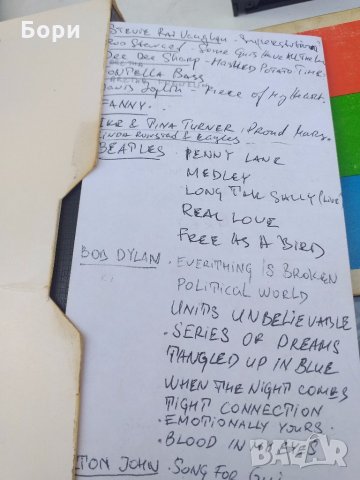 Бори
STEVIE RAY VAUGHAN
ROD STEWART - SOME GUYS HAVE ALL THE
DEE DEE SHARP - MASHED POTATO TIME
FONTELLA BASS
JANIS JOPLIN - PIECE OF MY HEART.
FANNY
IKE & TINA TURNER, PROUD MARY.
LINDA RONSTAD & EAGLES
BEATLES • PENNY LANE
MEDLEY
LONG TALL SALLY (LIVE)
REAL LOVE
FREE AS A BIRD
BOB DYLAN . EVERITHING IS BROKEN
POLITICAL WORLD
UNITS UNBELIEVABLE
• SERIES OF DREAMS
TANGLED UP IN BLUE
WHEN THE NIGHT COMES
TIGHT CONNECTION
• EMOTIONALLY YOURS.
• BLOOD IN MY EYES
ELTON JOHN . SONG FOR GUY
BAZAR